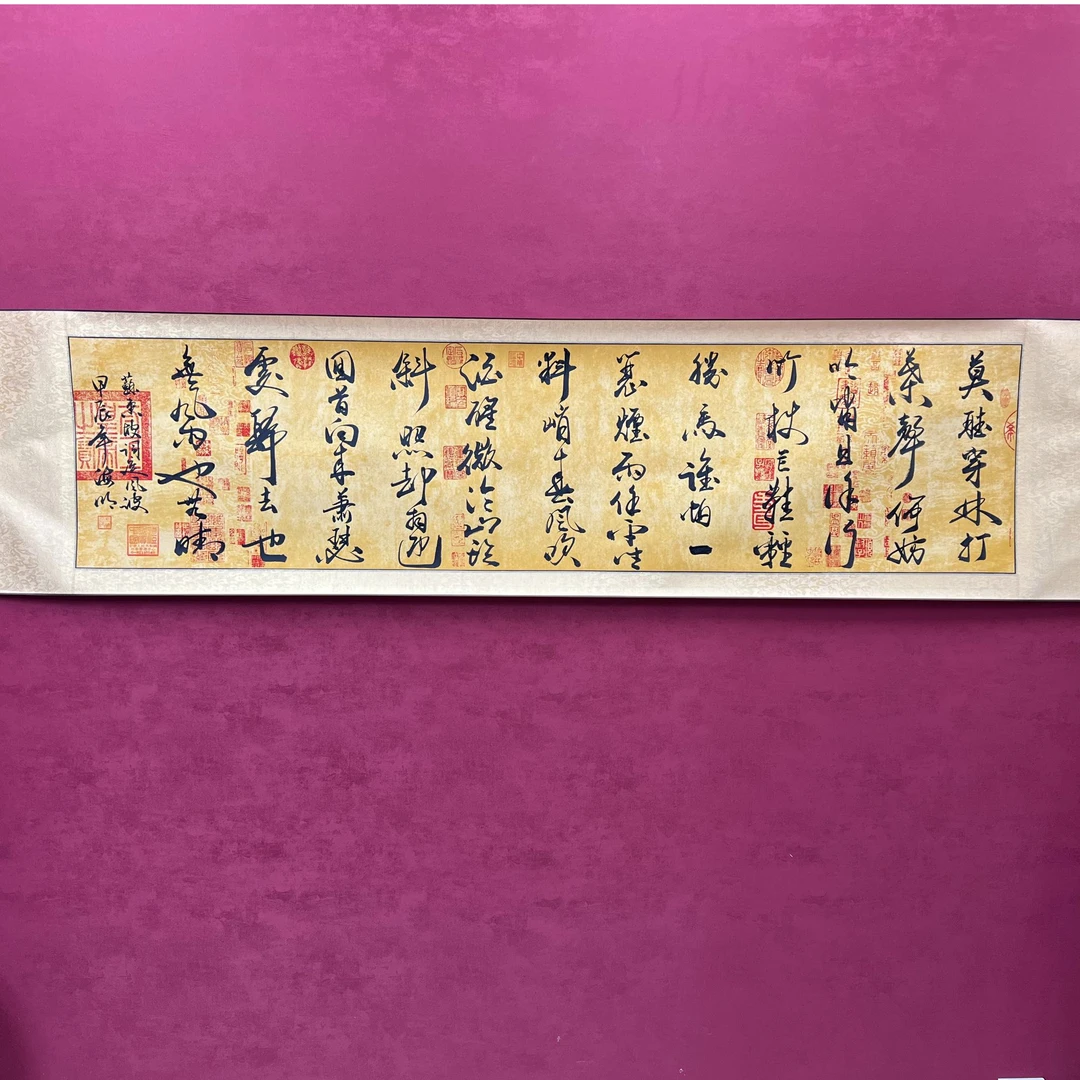 莫聽穿林打
葉聲何妨
吟嘯且徐行
竹杖芒鞋輕
勝馬誰怕一
蓑煙雨任平生
料峭春風吹
酒醒微冷山頭
斜照却相迎
回首向來蕭瑟
處歸去也
無風雨也無晴
蘇東坡詞定風波
甲辰年海明